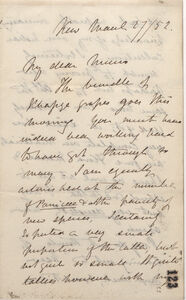 Kew March 27/52.
My dear Munro
The bundle of
Khasya grapes goes this
morning. You must have
indeed been working hard
to have got through so
many. I am equally
astonished at the number
of Paniceae & at the paucity of
new species. I certainly
expected a very small
proportion of the latter but
not quite so small. It quite
tallies however with my
123